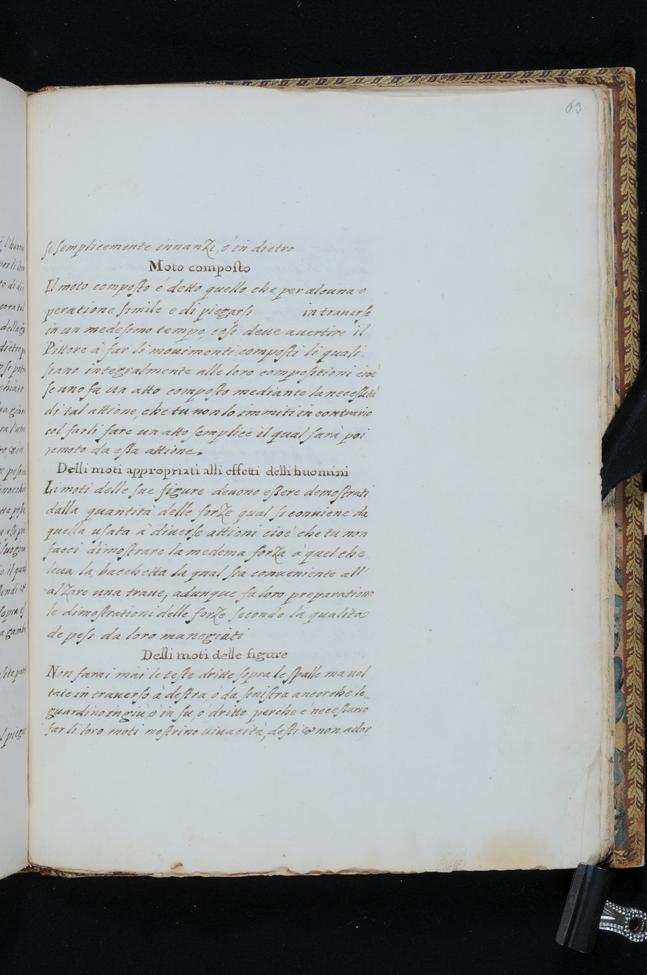 63
si semplicemente innanzi, ò in dietro
Moto composto
Il moto composto è detto quello che per alcuna o
peratione simile e di piegarsi in traverso
in un medesimo tempo, cosi deve avertire il
Pittore à far li movimenti composti li quali
siano integralmente alle loro compositioni cioè
se uno fa un atto composto mediante la necessità
di tal attione, che tu non lo immiti in contrario
col farli fare un atto semplice il qual sarà poi
remoto da essa attione.
Delli moti appropriati alli effetti delli huomini
Li moti delle sue figure devono essere demostrati
dalla quantità delle forze qual si conviene da
quella usata à diverse attioni cioè che tu non
facci dimostrare la medema forza à quel che
leva la bacchetta la qual sia conveniente all'
alzare una trave, adunque fa loro preparatione
le dimostrationi delle forze secondo la qualità
de peso da loro manegiati
Delli moti delle figure
Non farai mai le teste dritte sopra le spalle ma vol
tate in traverso à destra, ò da sinistra ancorche le
guardino in giù, ò in su, ò dritto perche è necessario
far li loro moti mostrino vivacità, desti et non ador